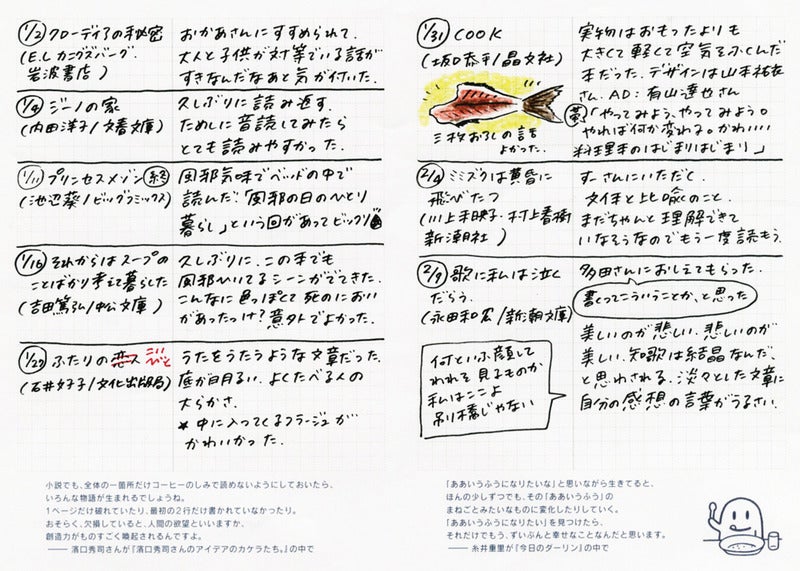 1/2 クローディアの秘密
(E.L.カニグズバーグ.
岩波書店)
おかあさんにすすめられて.
大人と子供が対等でいる話が
すきなんだなあと気が付いた.
1/4 ジーノの家
(内田洋子/文春文庫)
久しぶりに読み返す.
ためしに音読してみたら
とても読みやすかった.
1/11 プリンセスメゾン 終
(池辺葵/ビッグコミックス)
風邪気味でベッドの中で
読んだ.「風邪の日のひとり
暮らし」という回があってビックリ
1/16 それからはスープの
ことばかり考えて暮らした
(吉田篤弘/中公文庫)
久しぶりに.この本でも
風邪ひいてるシーンがでてきた.
こんなに色っぽくて死のにおい
があったっけ?意外でよかった.
1/27 ふたりの恋人 こいびと
(石井好子/文化出版局)
うたをうたうような文章だった.
底が明るい.よくたべる人の
大らかさ.
*中に入ってくるコラージュが
かわいかった.
小説でも、全体の一箇所だけコーヒーのしみで読めないようにしておいたら、
いろんな物語が生まれるでしょうね。
1ページだけ破れていたり、最初の2行だけ書かれていなかったり。
おそらく、欠損していると、人間の欲望といいますか、
創造力がものすごく喚起されるんですよ。
―― 濱口秀司さんが『濱口秀司さんのアイデアのカケラたち。』の中で
1/31 COOK
(坂口恭平/晶文社)
三枚おろしの話
よかった.
実物はおもったよりも
大きくて軽くて空気をふくんだ
本だった.デザインは山本祐衣
さん.AD:有山達也さん
「やってみよう、やってみよう。
やれば何か変わる。かわいい
料理本のはじまりはじまり」
2/4 ミミズクは黄昏に
飛びたつ
(川上未映子・村上春樹
新潮社)
すーさんにいただく.
文体と比喩のこと.
まだちゃんと理解できて
いなそうなのでもう一度読もう.
2/9 歌に私は泣く
だらう.
(永田和宏/新潮文庫)
何といふ顔して
われを見るものか
私はここよ
吊り橋じゃない
多田さんにおしえてもらった.
書くってこういうことか、と思った
美しいのが悲しい.悲しいのが
美しい.短歌は結晶なんだ、
と思わされる.淡々とした文章に
自分の感想の言葉がうるさい.
「ああいうふうになりたいな」と思いながら生きてると、
ほんの少しずつでも、その「ああいうふう」の
まねごとみたいなものに変化したりしていく。
「ああいうふうになりたい」を見つけたら、
それだけでもう、ずいぶんと幸せなことなんだと思います。
―― 糸井重里が『今日のダーリン』の中で